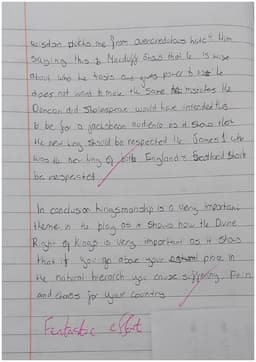 wisdom plucks me from overcredulous haste" Him
saying this to Macduff shows that he is wise
about who he trusts and gives power to he
does not want to make the same mistakes the
Duncan did Shakespeare would have intended this
to be for a jacobean audience as it shows that
the new king should be respected like James I who
was the new king of both England & Scotland should
be respected.
In conclusion kingsmanship is a very important
theme in the play as it shows how the Divine
Right of Kings is very important as it shows
that if you go above your natural place in
the natural hierarch you cause suffering, Pain
and chaos for your country
Fantastic effort